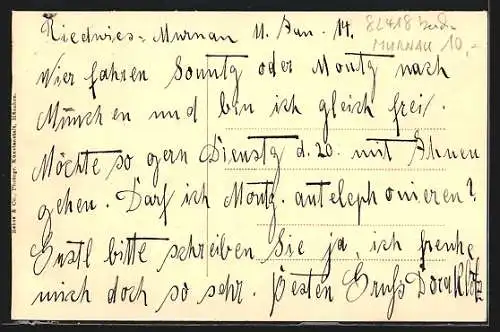 Riedwies - Murnau 11. Jan. 14.
82418 Seeh
MURNAU 10,-
Wier fahren Sonntg oder Montg nach
München und bin ich gleich frei.
Möchte so gern Dienstg d. 20. mit Ihnen
gehen. Darf ich Montg. antelephonieren?
Gustl bitte schreiben Sie ja, ich freuhe
mich doch so sehr. Besten Gruss Dora Klotz